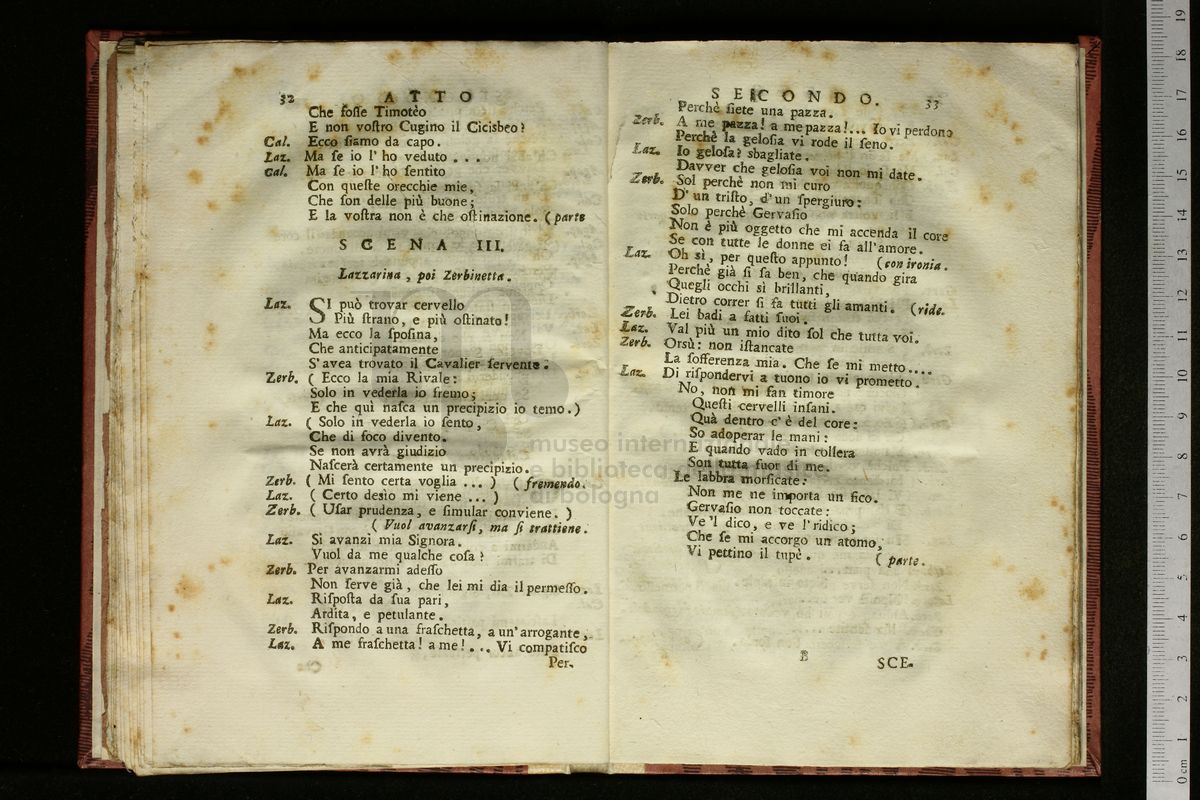 32 ATTO
Che foſſe Timotèo
E non voſtro Cugino il Cicisbeo?
Cal. Ecco ſiamo da capo.
Laz. Ma ſe io l' ho veduto . . .
Cal. Ma ſe io l' ho ſentito
Con queſte orecchie mie,
Che ſon delle più buone;
E la voſtra non è che oſtinazione. (parte
SCENA III.
Lazzarina, poi Zerbinetta.
Laz. SI può trovar cervello
Più ſtrano, e più oſtinato!
Ma ecco la ſpoſina,
Che anticipatamente
S'avea trovato il Cavalier ſervente.
Zerb. ( Ecco la mia Rivale:
Solo in vederla io fremo;
E che quì naſca un precipizio io temo.)
Laz. ( Solo in vederla io ſento,
Che di foco divento.
Se non avrà giudizio
Naſcerà certamente un precipizio.
Zerb. ( Mi ſento certa voglia ... ) (fremendo.
Laz. ( Certo desìo mi viene ... )
Zerb. ( Uſar prudenza, e ſimular conviene. )
( Vuol avanzarſi, ma ſi trattiene.
Laz. Si avanzi mia Signora.
Vuol da me qualche coſa?
Zerb. Per avanzarmi adeſſo
Non ſerve già, che lei mi dia il permeſſo.
Laz. Riſpoſta da ſua pari,
Ardita, e petulante.
Zerb. Riſpondo a una fraſchetta, a un'arrogante,
Laz. A me fraſchetta! a me! . . . Vi compatiſco
Per.
SECONDO. 33
Perchè ſiete una pazza.
Zerb. A me pazza! a me pazza!... Io vi perdono
Perchè la geloſia vi rode il ſeno.
Laz. Io geloſa? sbagliate.
Davver che geloſia voi non mi date.
Zerb. Sol perchè non mi curo
D'un triſto, d'un ſpergiuro:
Solo perchè Gervaſio
Non è più oggetto che mi accenda il core
Se con tutte le donne ei fa all'amore.
Laz. Oh sì, per queſto appunto! (con ironia.
Perchè già ſi ſa ben, che quando gira
Quegli occhi sì brillanti,
Dietro correr ſi fa tutti gli amanti. (ride.
Zerb. Lei badi a fatti ſuoi.
Laz. Val più un mio dito ſol che tutta voi.
Zerb. Orsù: non iſtancate
La ſofferenza mia. Che ſe mi metto....
Laz. Di riſpondervi a tuono io vi prometto.
No, non mi fan timore
Queſti cervelli inſani.
Quà dentro c'è del core:
So adoperar le mani:
E quando vado in collera
Son tutta fuor di me.
Le labbra morſicate:
Non me ne importa un fico.
Gervaſio non toccate:
Ve 'l dico, e ve l'ridico;
Che ſe mi accorgo un atomo,
Vi pettino il tupè. (parte.
B SCE.
museo internazionale
e biblioteca della musica
di bologna
0 cm 1 2 3 4 5 6 7 8 9 10 11 12 13 14 15 16 17 18 19